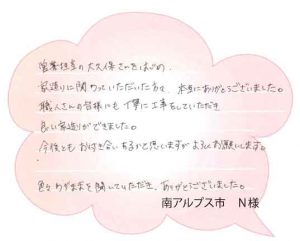 営業担当の大久保さんをはじめ、
家造りに関わっていただいた方々、本当にありがとうございました。
職人さんの皆様にも丁寧に工事をしていただき
良い家造りができました。
今後とも お付き合いあるかと思いますがよろしくお願いします。
色々わがままを聞いていただき、ありがとうございました。
南アルプス市 N様